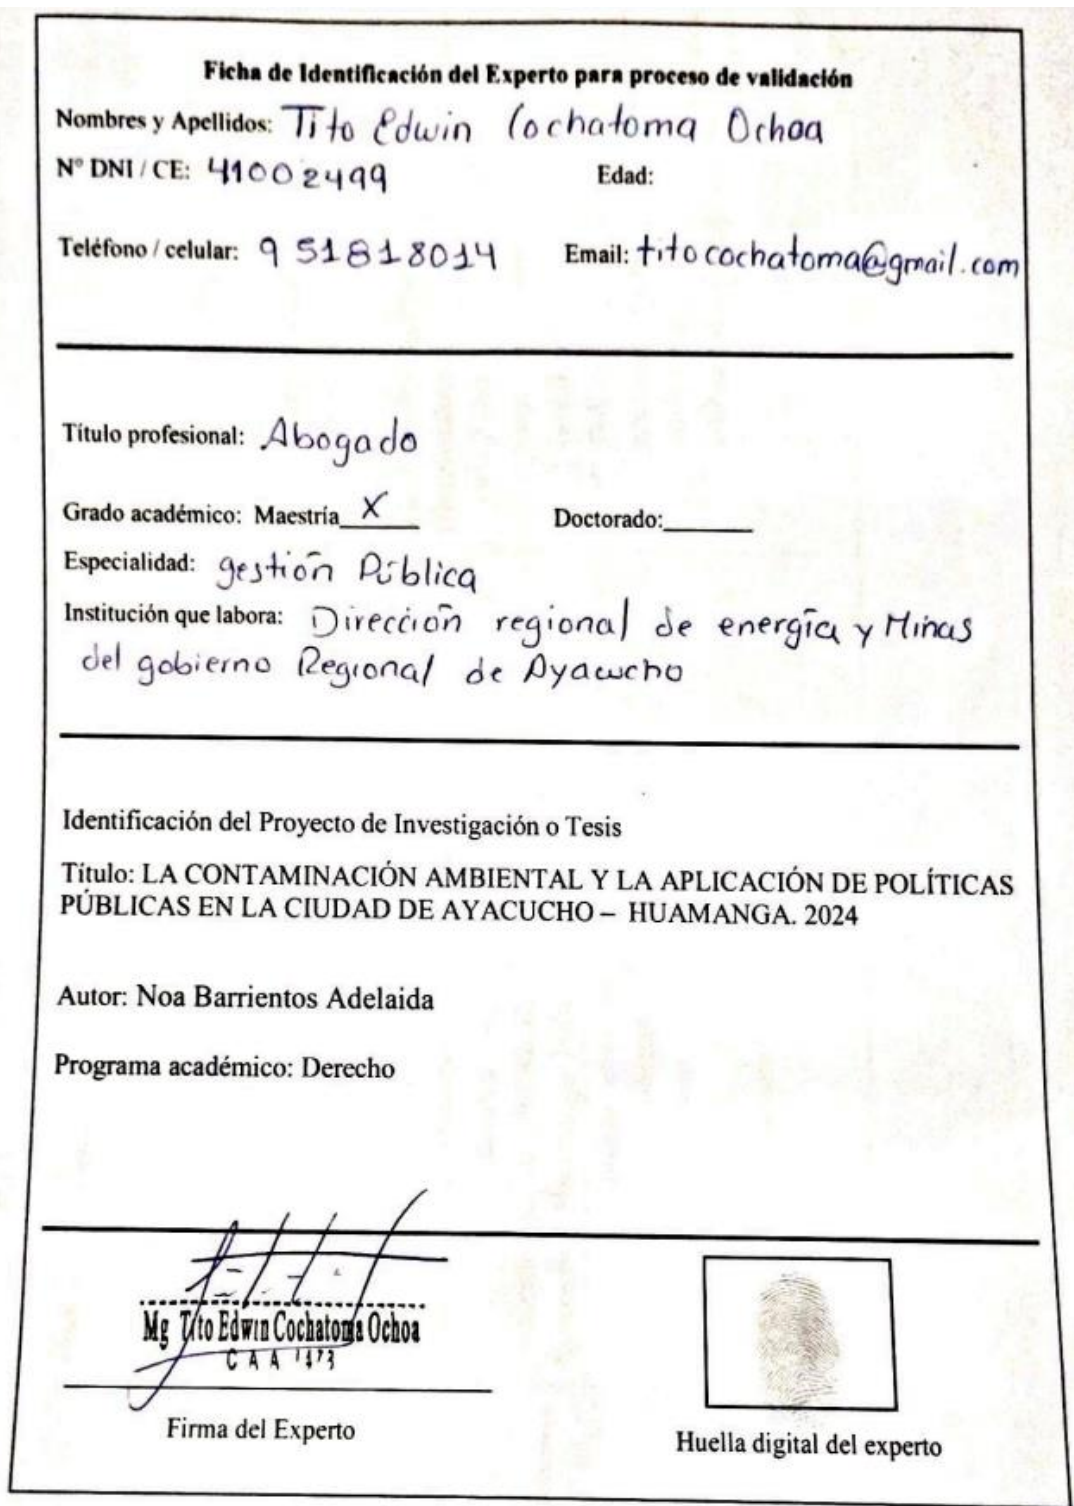 Ficha de Identificación del Experto para proceso de validación
Nombres y Apellidos: Tito Edwin Cochatoma Ochoa
N° DNI / CE: 41002499 Edad:
Teléfono / celular: 951818014 Email: titocochatoma@gmail.com
Título profesional: Abogado
Grado académico: Maestría X Doctorado:
Especialidad: gestión Pública
Institución que labora: Dirección regional de energía y Minas
del gobierno Regional de Ayacucho
Identificación del Proyecto de Investigación o Tesis
Título: LA CONTAMINACIÓN AMBIENTAL Y LA APLICACIÓN DE POLÍTICAS
PÚBLICAS EN LA CIUDAD DE AYACUCHO – HUAMANGA. 2024
Autor: Noa Barrientos Adelaida
Programa académico: Derecho
Mg Tito Edwin Cochatoma Ochoa
CAA 1473
Firma del Experto
Huella digital del experto